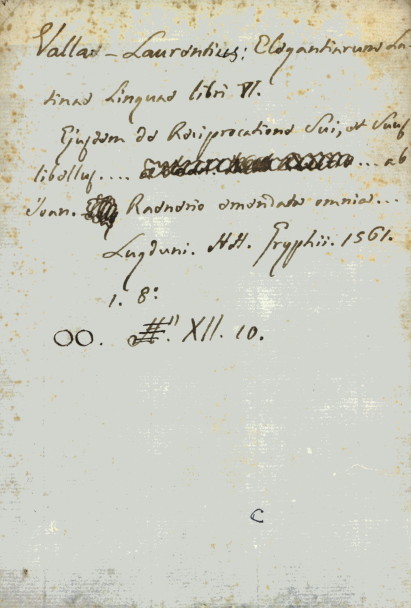 Vallae - Laurentius; Elegantiarum La-
tinae Linguae libri VI.
Ejusdem de Reciprocatione Sui, et Suus
libellus.... ... ab
Ioan. Raenerio emendata omnia...
Lugduni. HH. Gryphii. 1561.
1. 8º
OO. #." XII. 10.
C